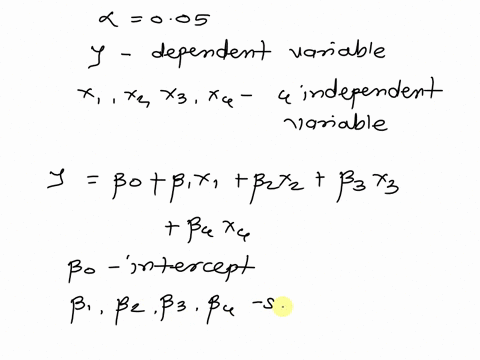 α = 0.05
y - dependent variable
x₁, x₂, x₃, x₄ - 4 independent
variable
y = β0 + β₁x₁ + β₂x₂ + β₃x₃
+ β₄x₄
β₀ - intercept
β₁, β₂, β₃, β₄ - s